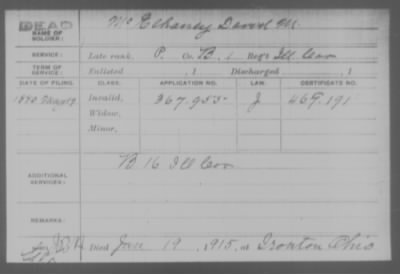 DEAD
NAME OF SOLDIER: Mc Elhaney David M.
SERVICE: Late rank, P. Co. B, Reg't Ill Cav
TERM OF SERVICE: Enlisted , 1 Discharged , 1
DATE OF FILING. CLASS. APPLICATION NO. LAW. CERTIFICATE NO.
1880 May 19 Invalid, 367.953 J 469.191
Widow,
Minor,
ADDITIONAL SERVICES: B 16 Ill Cav
REMARKS:
Died June 19, 1915, at Ironton Ohio